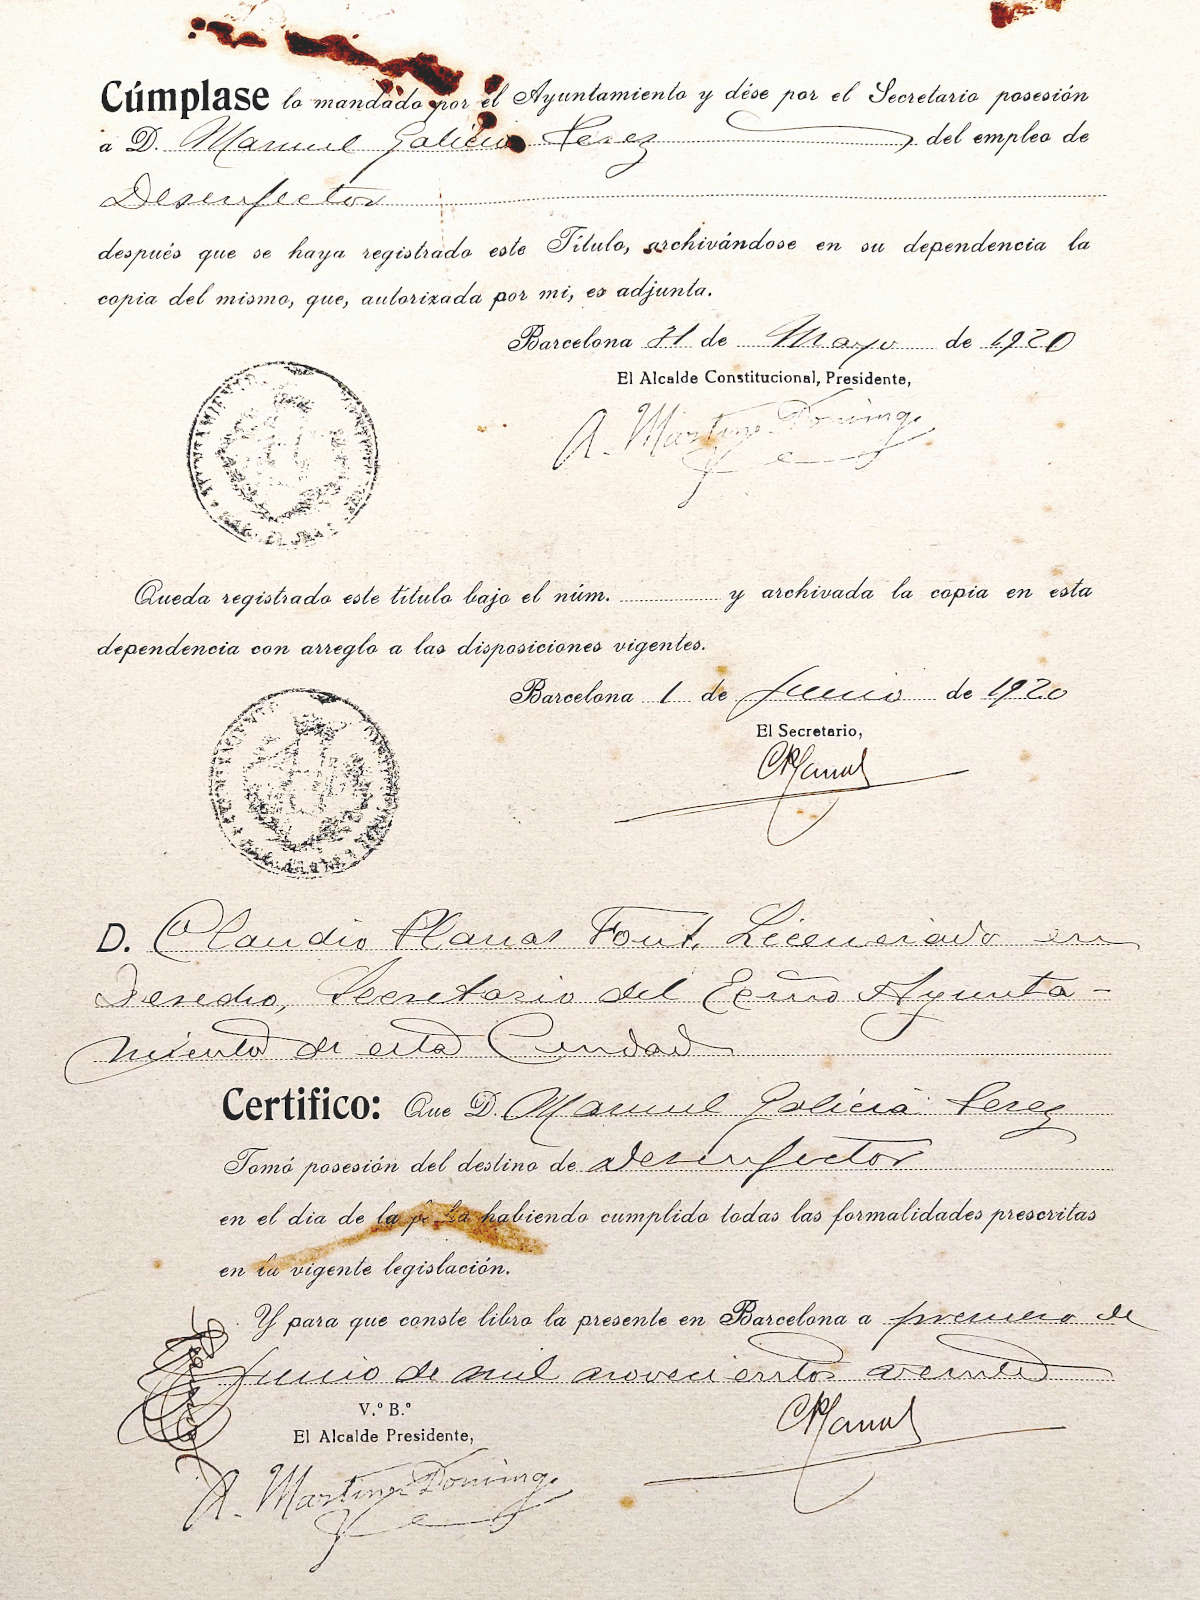 Cúmplase lo mandado por el Ayuntamiento y dése por el Secretario posesión
a D. Manuel Galicia Perez del empleo de
Desinfector
después que se haya registrado este Título, archivándose en su dependencia la
copia del mismo, que, autorizada por mi, es adjunta.
Barcelona 31 de Mayo de 1920
El Alcalde Constitucional, Presidente,
A. Martinez Domingo
Queda registrado este título bajo el núm. y archivada la copia en esta
dependencia con arreglo a las disposiciones vigentes.
Barcelona 1 de Junio de 1920
El Secretario,
CPlanas
D. Claudio Planas Font, Licenciado en
Derecho, Secretario del Excmo Ayunta-
miento de esta Ciudad
Certifico: Que D. Manuel Galicia Perez
Tomó posesión del destino de Desinfector
en el dia de la fecha habiendo cumplido todas las formalidades prescritas
en la vigente legislación.
Y para que conste libro la presente en Barcelona a primero de
Junio de mil novecientos veinte
V.º B.º
El Alcalde Presidente,
CPlanas
A. Martinez Domingo